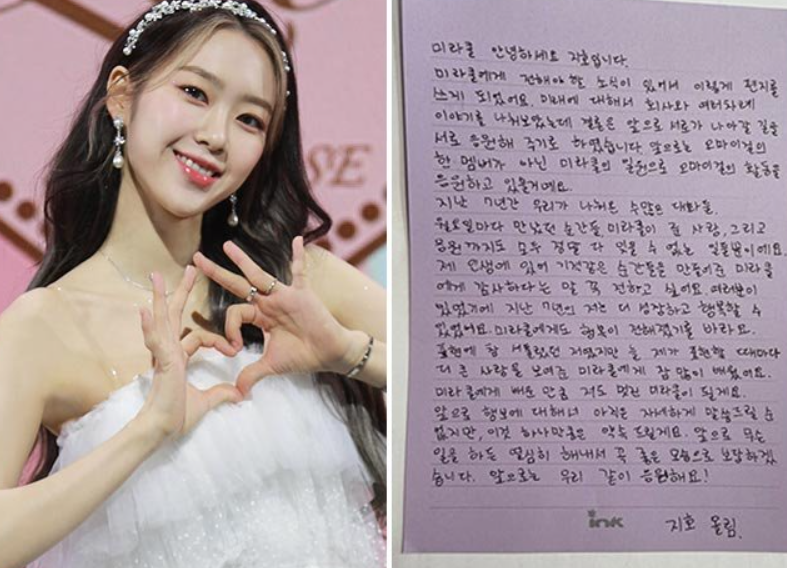 SE
미라클 안녕하세요 지호입니다.
미라클에게 전해야 할 소식이 있어서 이렇게 편지를
쓰게 되었어요. 미래에 대해서 회사와 여러차례
이야기를 나눠보았는데 결론은 앞으로 서로가 나아갈 길을
서로 응원해 주기로 하였습니다. 앞으로는 오마이걸의
한 멤버가 아닌 미라클의 일원으로 오마이걸의 활동을
응원하고 있을거예요.
지난 7년간 우리가 나눠온 수많은 대화들.
월요일마다 만났던 순간들 미라클이 준 사랑, 그리고
응원까지도 모두 정말 다 잊을 수 없는 일들뿐이에요.
제 인생에 있어 기적같은 순간들을 만들어준 미라클
에게 감사하다는 말 꼭 전하고 싶어요. 여러분이
있었기에 지난 7년의 저는 더 성장하고 행복할 수
있었어요. 미라클에게도 행복이 전해졌기를 바라요.
표현에 참 서툴렀던 저였지만 늘 제가 표현할 때마다
더 큰 사랑을 보여준 미라클에게 참 많이 배웠어요.
미라클에게 배운 만큼 저도 멋진 미라클이 될게요.
앞으로 행보에 대해서 아직은 자세하게 말씀드릴 순
없지만, 이것 하나만큼은 약속 드릴게요. 앞으로 무슨
일을 하든 열심히 해내서 꼭 좋은 모습으로 보답하겠
습니다. 앞으로는 우리 같이 응원해요!
ink 지호 올림.